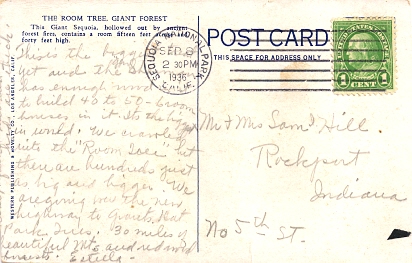 THE ROOM TREE, GIANT FOREST
This Giant Sequoia, hollowed out by ancient
forest fires, contains a room fifteen feet across and
forty feet high.
This is the biggest
yet and the
has enough wood
to build 40 to 50 - 6 room
houses in it. Its the biggest
in world. We crawled up
into the "Room Tree" but
there are hundreds just
as big and bigger. We
are going over the new
highway to Grant's Nat
Park Trees. 30 miles of
beautiful Mts and red wood
forests. Estella -
WESTERN PUBLISHING & NOVELTY CO., LOS ANGELES, CALIF.
SEQUOIA NATIONAL PARK
SEP 8
2 30PM
1936
CALIF.
POST CARD
THIS SPACE FOR ADDRESS ONLY
UNITED STATES POSTAGE
1 CENT 1
Mr & Mrs Saml Hill.
Rockport
Indiana
No 5th St.